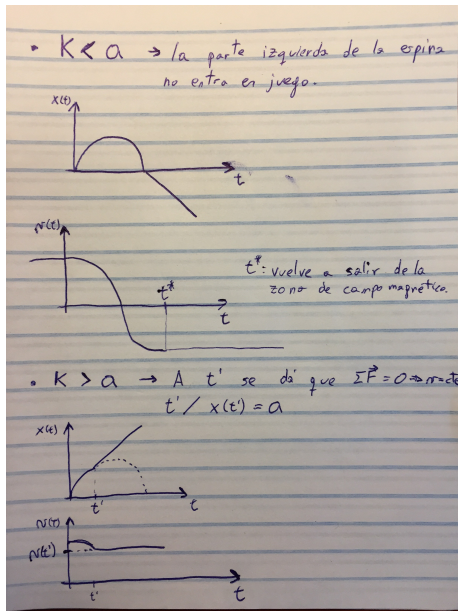 • K < a → la parte izquierda de la espira
no entra en juego.
x(t)
t
v(t)
t*
t
t*: vuelve a salir de la
zona de campo magnético.
• K > a → A t' se dá que ΣF⃗ = 0 ⇒ v=cte
t' / x(t') = a
x(t)
t'
t
v(t)
v(t')
t'
t